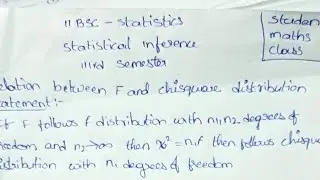 II BSC - statistics
statistical inference
IIIrd semester
studen
maths
class
elation between F and chisquare distribution
tatement:-
If F follows f distribution with n1,n2 degrees of
reedom and n2→∞ then χ² = n1F then follows chisqua
istribution with n1 degrees of freedom